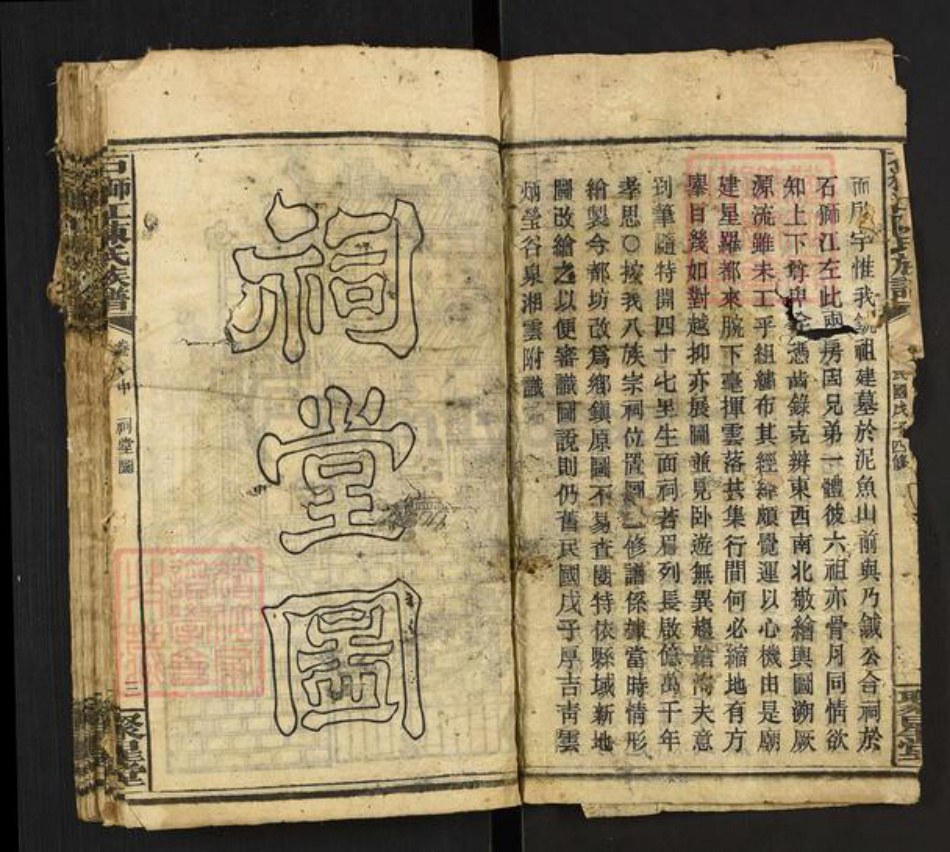 而居宇惟我銑祖建墓於泥魚山前與乃鉞公合祠於
石獅江左此兩房固兄弟一體彼六祖亦骨月同情欲
知上下尊卑全憑齒錄克辨東西南北敬繪輿圖溯厥
源流雖未工乎組繡布其經緯頗覺運以心機由是廟
建星羅都來腕下毫揮雲落共集行間何必縮地有方
寨目幾如對越抑亦展圖並見卧遊無異趨蹌洵夫意
到筆隨特開四十七里生面祠若眉列長啟億萬千年
孝思○按我八族宗祠位置圖一修譜係據當時情形
繪製今都坊改爲鄉鎮原圖不易查閱特依縣域新地
圖改繪之以便審識圖說則仍舊民國戊子厚吉靑雲
炳瑩谷泉湘雲附識
民國戊子四修
聚星堂
祠堂圖
石獅江陳氏族譜
卷八中
祠堂圖
三
聚星堂